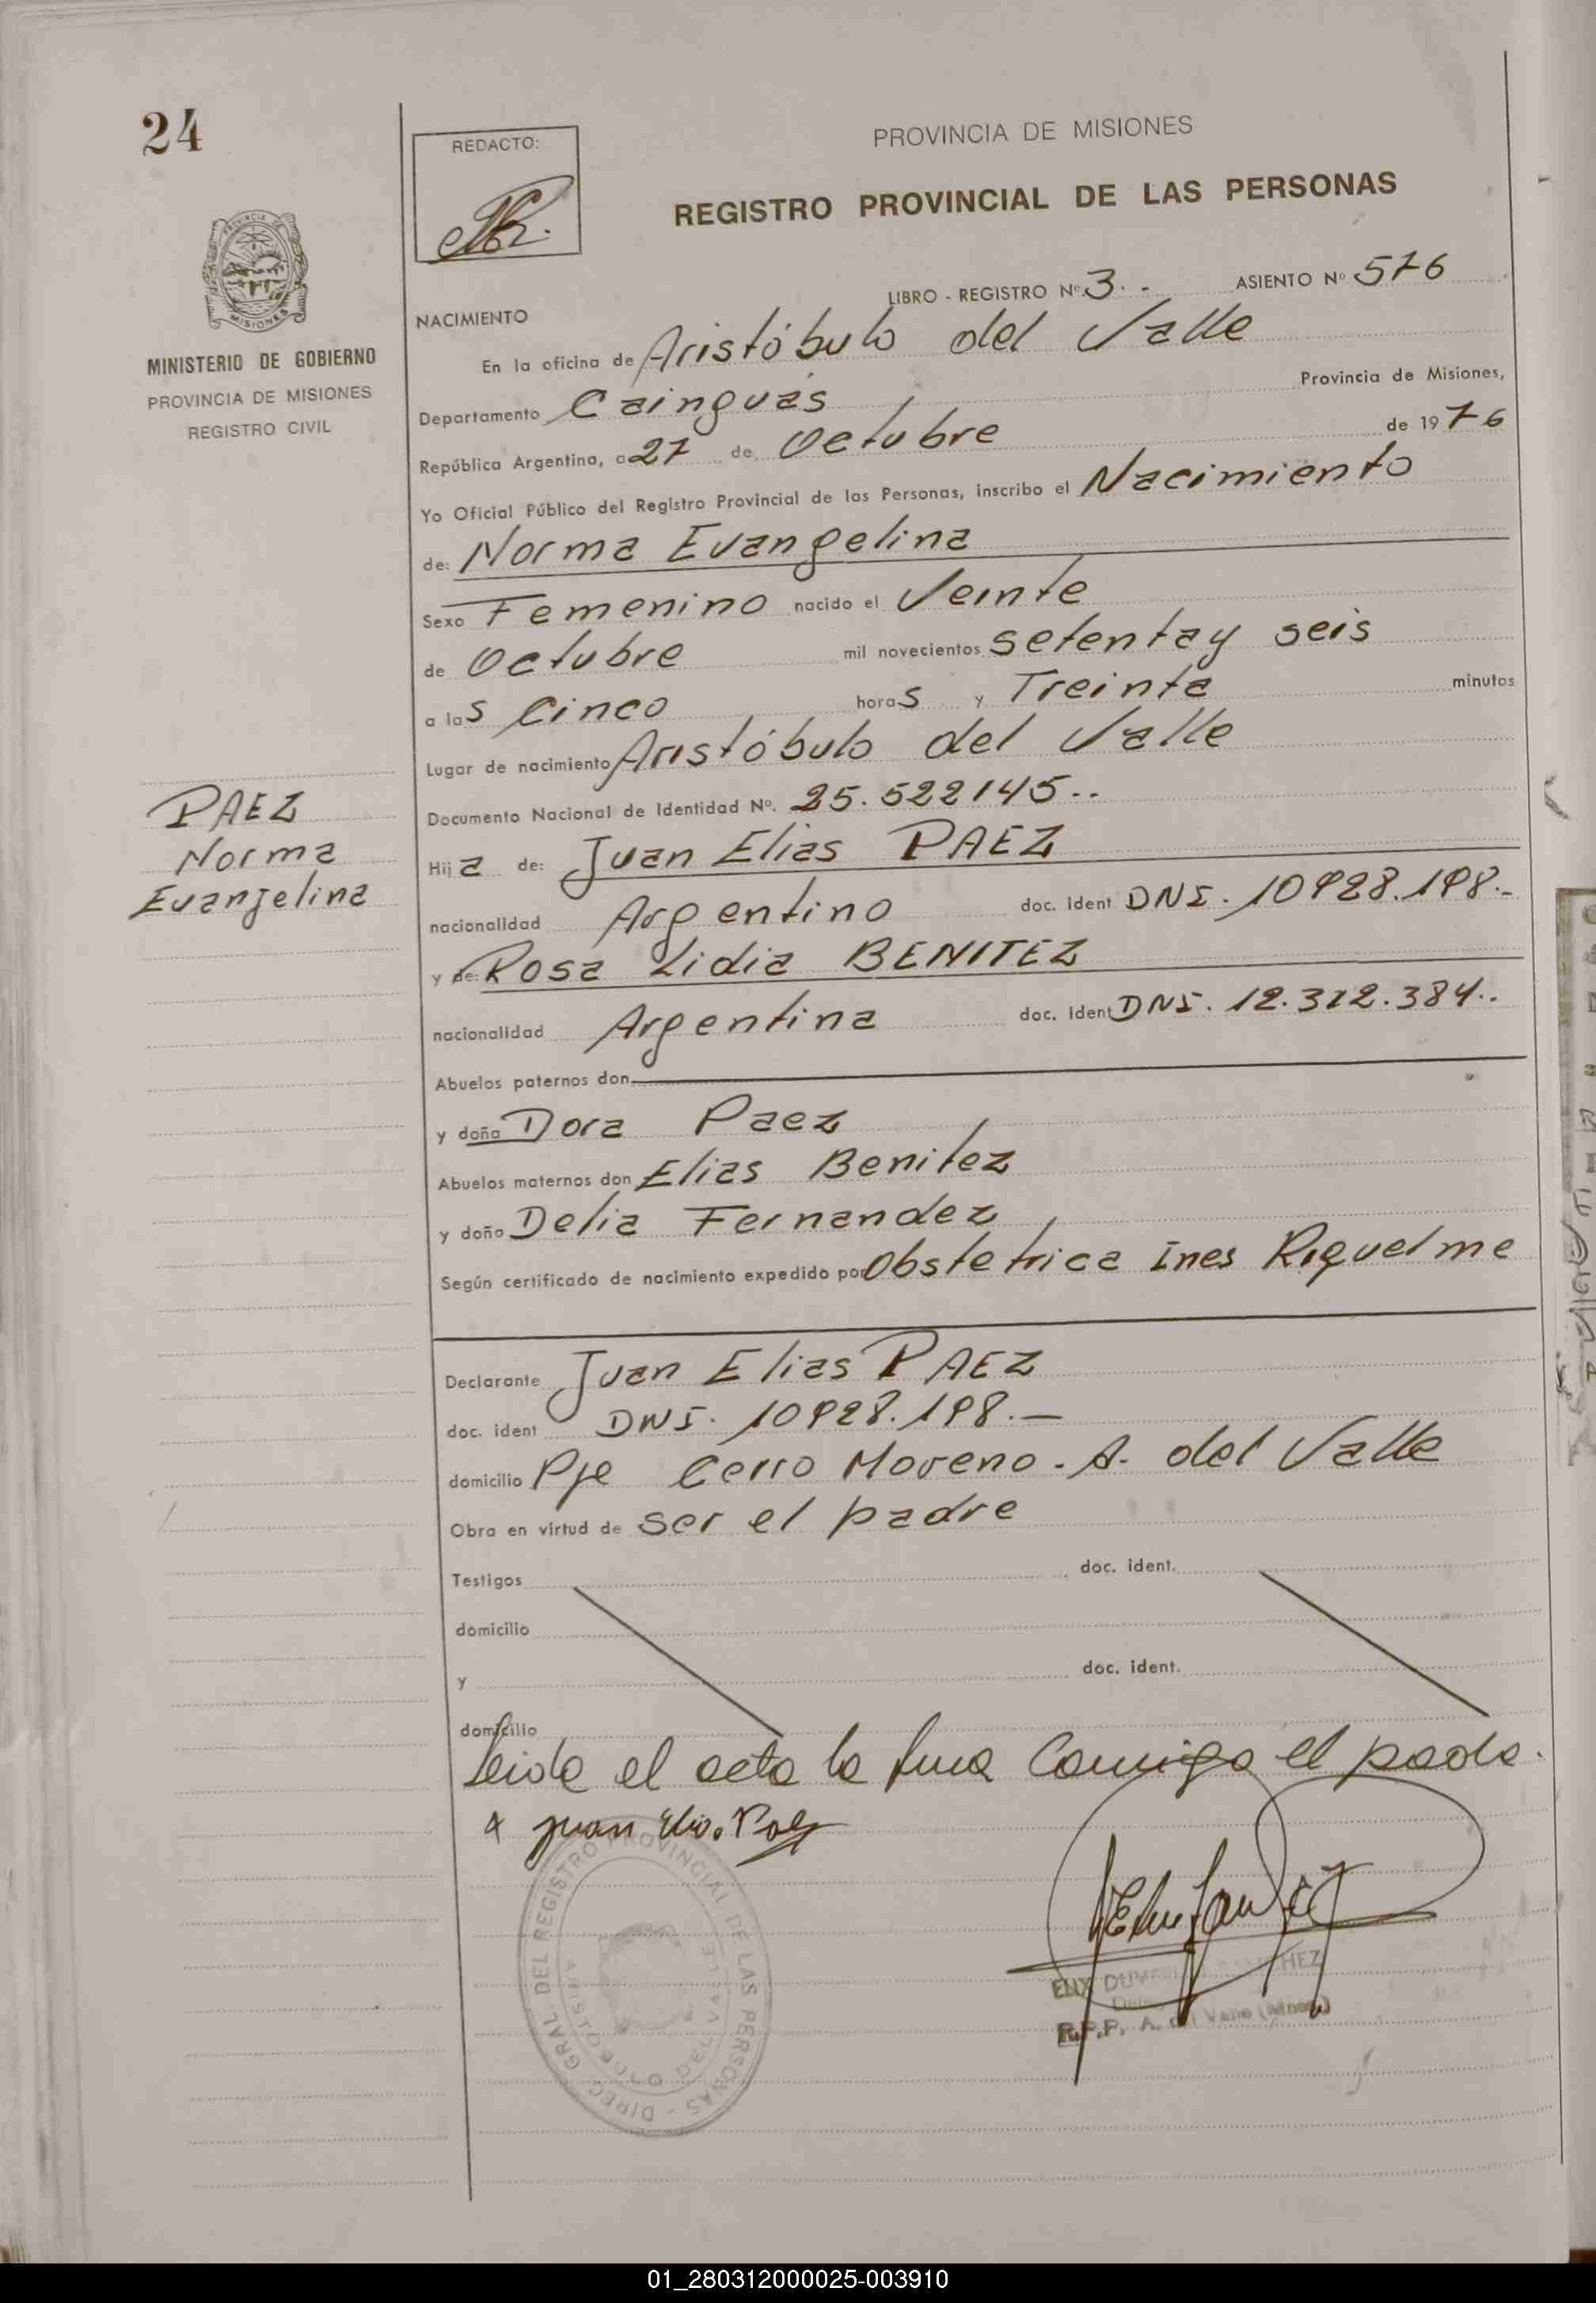 24
REDACTO:
PROVINCIA DE MISIONES
REGISTRO PROVINCIAL DE LAS PERSONAS
PROVINCIA DE
MISIONES
MINISTERIO DE GOBIERNO
PROVINCIA DE MISIONES
REGISTRO CIVIL
LIBRO - REGISTRO Nº 3.- ASIENTO Nº 576
NACIMIENTO
En la oficina de Aristóbulo del Valle
Departamento Cainguás Provincia de Misiones,
República Argentina, a 27 de Octubre de 1976
Yo Oficial Público del Registro Provincial de las Personas, inscribo el Nacimiento
de: Norma Evangelina
Sexo Femenino nacido el Veinte
de Octubre mil novecientos setenta y seis
a las Cinco horas y Treinta minutos
Lugar de nacimiento Aristóbulo del Valle
Documento Nacional de Identidad Nº. 25.522145..
PAEZ
Norma
Evangelina
Hija de: Juan Elias PAEZ
nacionalidad Argentino doc. ident DNI. 10928.198.-
y de: Rosa Lidia BENITEZ
nacionalidad Argentina doc. ident DNI. 12.312.384..
Abuelos paternos don
y doña Dora Paez
Abuelos maternos don Elias Benitez
y doña Delia Fernandez
Según certificado de nacimiento expedido por Obstetrica Ines Riquelme
Declarante Juan Elias PAEZ
doc. ident DNI. 10928.198.—
domicilio Pje Cerro Moreno - A. del Valle
Obra en virtud de ser el padre
Testigos doc. ident.
domicilio
y doc. ident.
domicilio
Leida el acta la firma Conmigo el padre.
Juan Elia. Paez
DIREC. GRAL. DEL REGISTRO PROVINCIAL DE LAS PERSONAS -
ARISTOBULO DEL VALLE
R.P.P. A. del Valle (Mnes.)
01_280312000025-003910